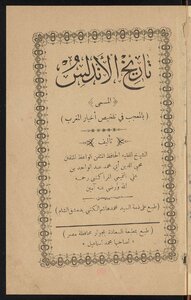 تاريخ الأندلس
المسمى
(بالمعجب في تلخيص أخبار المغرب)
تأليف
الشيخ الفقيه الحافظ المتقن الواعظ المتفنن
محيي الدين أبي محمد عبد الواحد بن
علي التميمي المراكشي رحمه
الله ورضي عنه آمين
طبع على ذمة السيد محمد هاشم الكتبي
طبع بمطبعة السعادة بجوار محافظة مصر
لصاحبها محمد اسماعيل